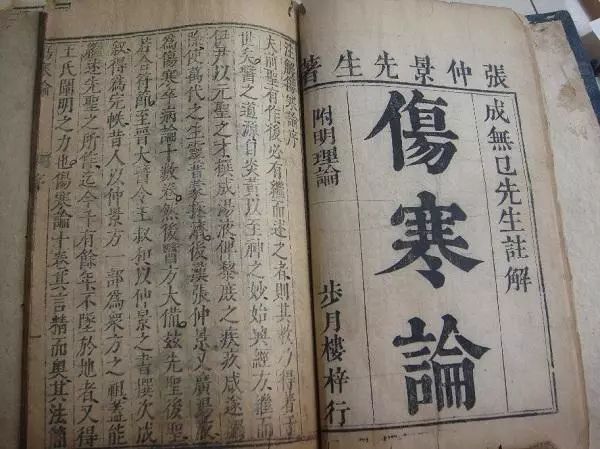 張仲景先生著
成無已先生註解
傷寒論
附明理論
步月樓梓行
註解傷寒論序
夫前聖有作後必有繼而述之者則其教乃得著于
世矣醫之道源自炎黃以至神之妙始興經方繼而
伊尹以元聖之才撰成湯液俾黎庶之疾疢咸遂蠲
除使萬代之生靈普蒙拯濟後漢張仲景又廣湯液
為傷寒卒病論十數卷然後醫方大備茲先聖後聖
若合符節至晉太醫令王叔和以仲景之書撰次成
敘得為完帙昔人以仲景方一部為衆方之祖蓋能
繼述先聖之所作迄今千有餘年不墜於地者又得
王氏闡明之力也傷寒論十卷其言精而奧其法簡